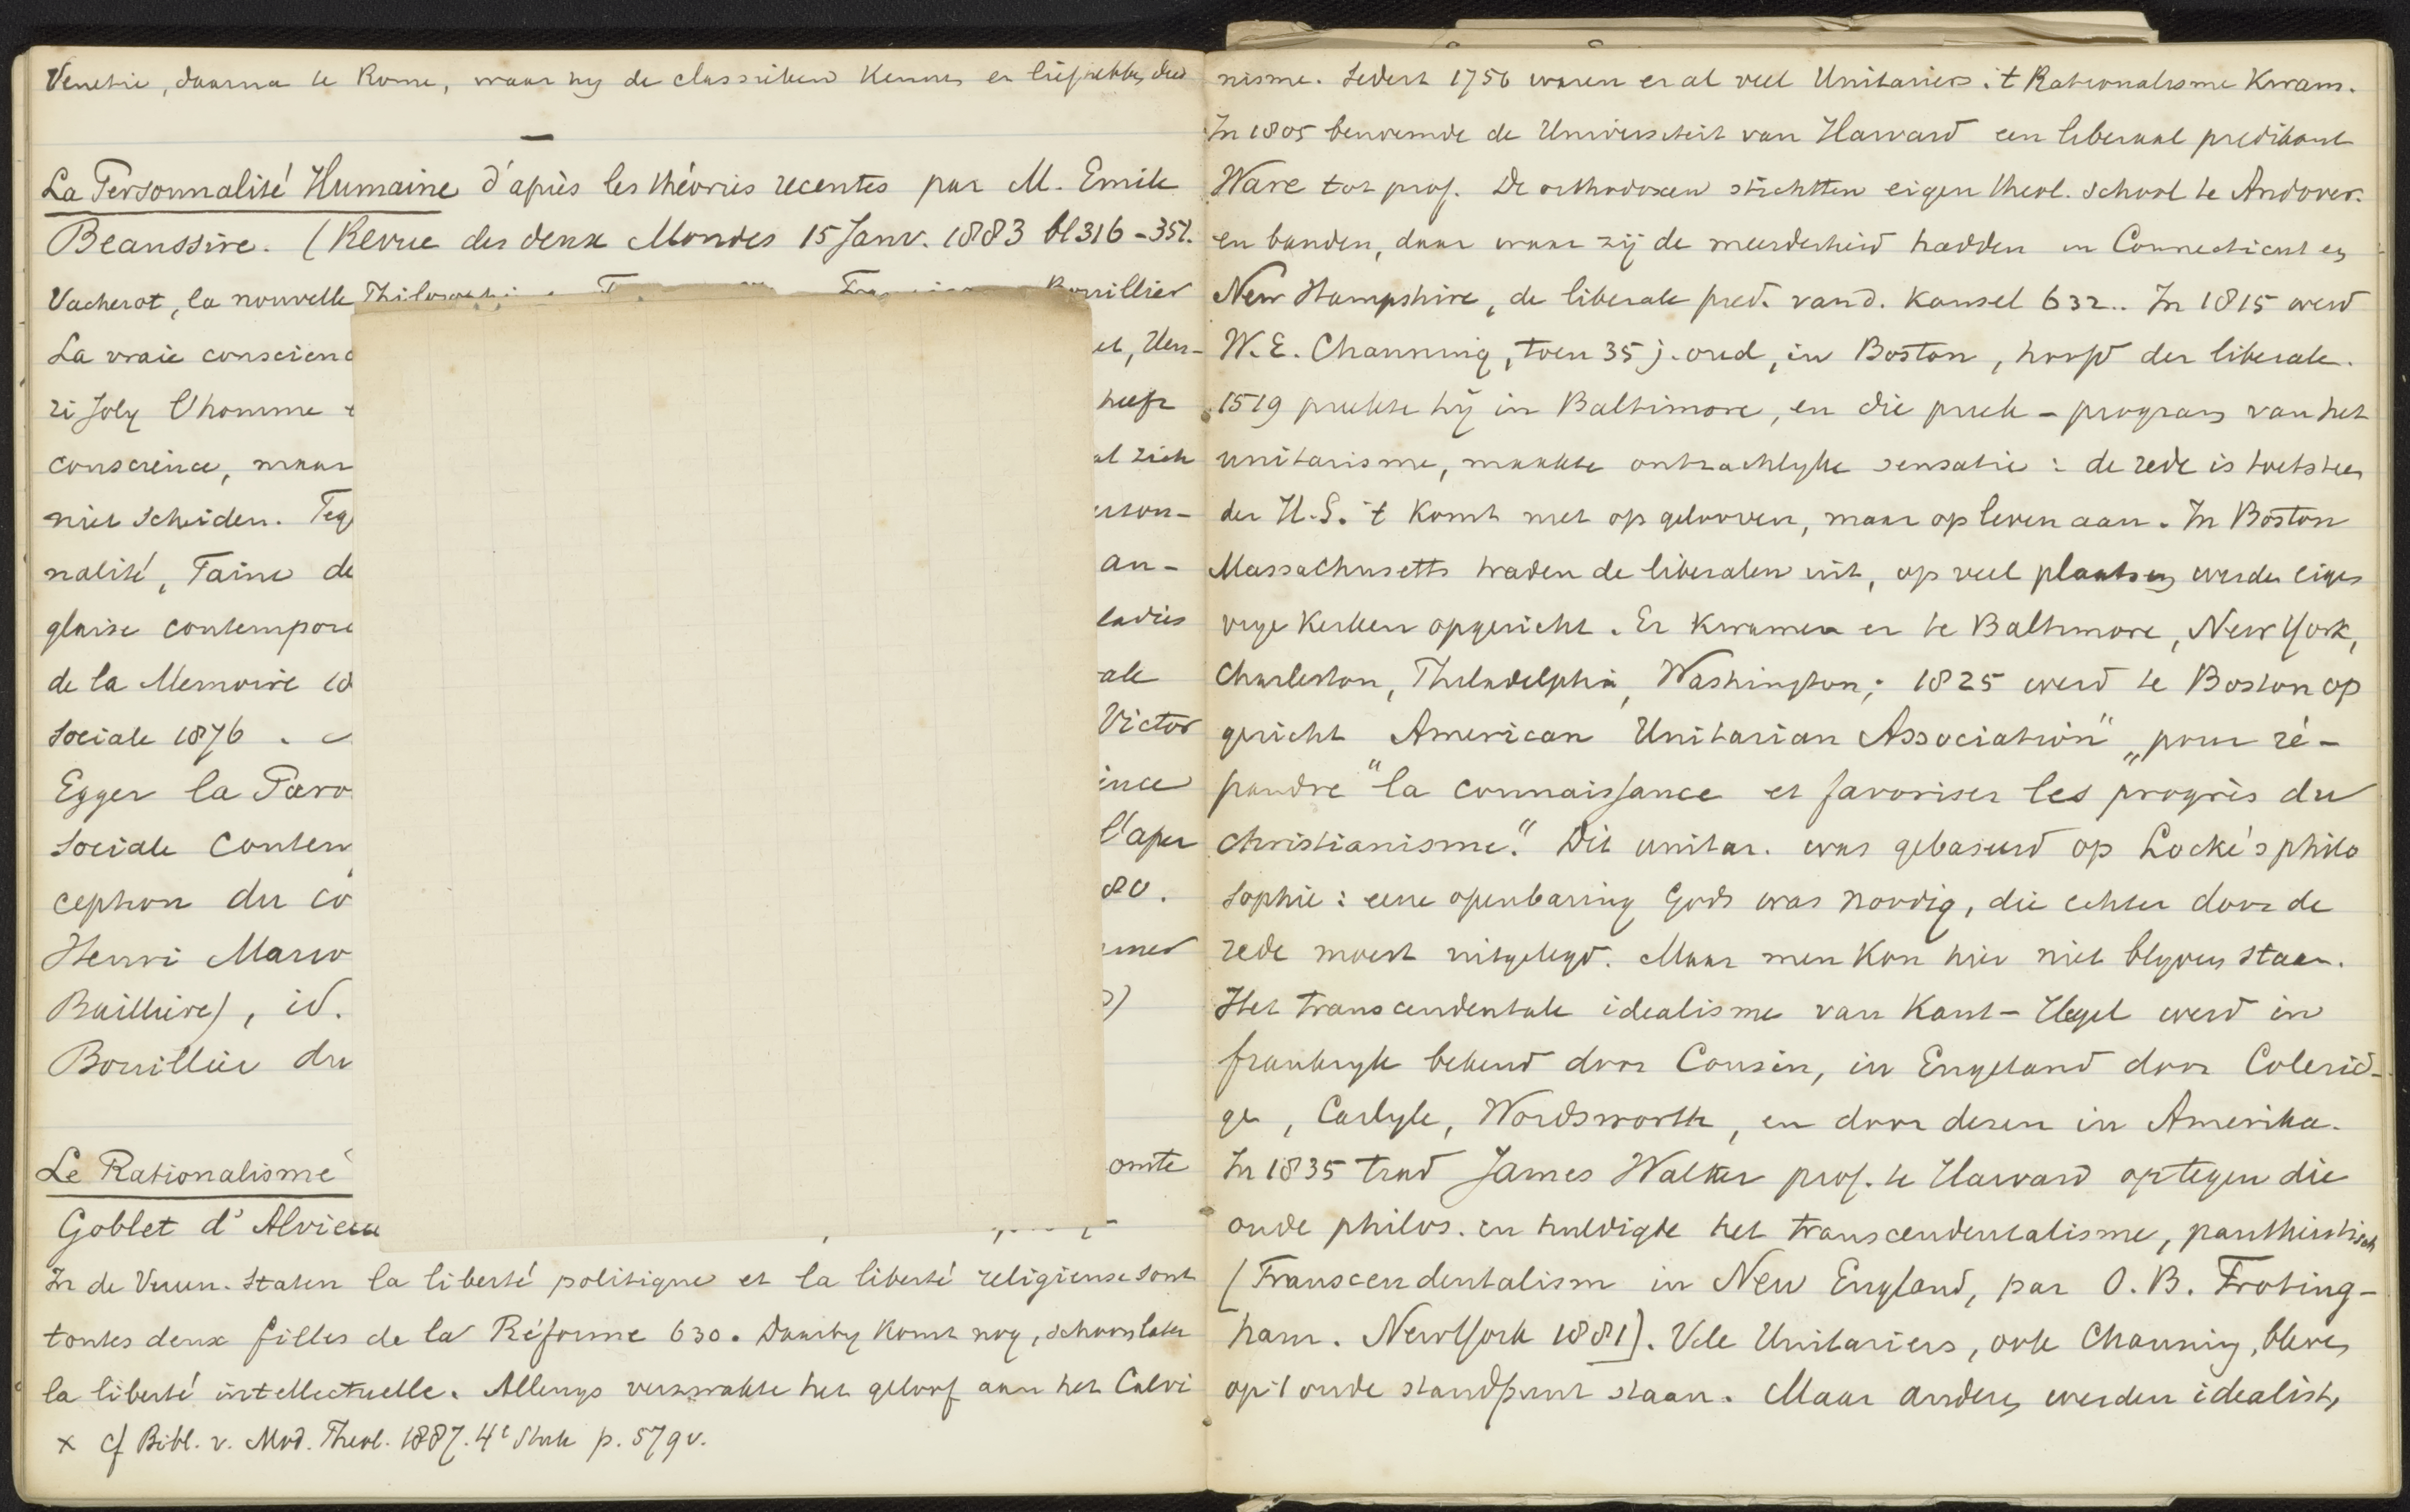 Venetie, daarna te Rome, waar hij de classieken kennen en liefhebben deed
La Personnalité Humaine d'après les théories recentes par M. Emile
Beaussire. (Revue des deux Mondes 15 Janv. 1883 bl 316-351.
Vacherot, la nouvelle Bouillier
La vraie conscienc et, Hen-
ri Joly l'homme heeft
conscience, maar al zich
niet scheiden. Teg erson-
nalité, Taine de an-
glaise contempora ladies
de la Memoire 18 ale
sociale 1876. Victor
Egger la Paro ince
sociale conten l'aper
ception du co 80.
Henri Mario
Baillière), id.
Bouillier du
Le Rationalisme omte
Goblet d'Alviella
In de Vereen. Staten la liberté politique et la liberté religieuse sont
toutes deux filles de la Réforme 630. Daarby komt nog, schoon later
la liberté intellectuelle. Allengs verzwakte het geloof aan het Calvi
x cf Bibl. v. Mod. Theol. 1887. 4e Stuk p. 579 v.
nisme. Sedert 1756 waren er al veel Unitariers. 't Rationalisme kwam.
In 1805 benoemde de Universiteit van Harvard een liberaal predikant
Ware tot prof. De orthodoxen stichtten eigen theol. school te Andover.
en banden, daar waar zij de meerderheid hadden in Connecticut en
New Hampshire, de liberale pred. van d. kansel 632.. In 1815 werd
W. E. Channing, toen 35 j. oud, in Boston, hoofd der liberale.
1519 preekte hij in Baltimore, en die preek - program van het
unitarisme, maakte ontzachlyke sensatie: de rede is toetssteen
der H.S. 't komt niet op gelooven, maar op leven aan. In Boston
Massachusetts traden de liberalen uit, op veel plaatsen werden eigen
vrye kerken opgericht. Er kwamen er te Baltimore, New York,
Charleston, Philadelphia, Washington; 1825 werd te Boston op
gericht American Unitarian Association" „pour ré-
pandre "la connaissance et favoriser les progrès du
christianisme." Dit unitar. was gebaseerd op Locke's philo
sophie: eene openbaring Gods was noodig, die echter door de
rede moest uitgelegd. Maar men kon hier niet blyven staan.
Het transcendentale idealisme van Kant-Hegel werd in
frankryk bekend door Cousin, in Engeland door Colerid-
ge, Carlyle, Wordsworth, en door dezen in Amerika.
In 1835 trad James Walker prof. te Harvard op tegen die
oude philos. en huldigde het transcendentalisme, pantheistisch
[Transcendentalism in New England, par O. B. Froting-
ham. New York 1881]. Vele Unitariers, ook Channing, bleven
op 't oude standpunt staan. Maar anderen werden idealist,